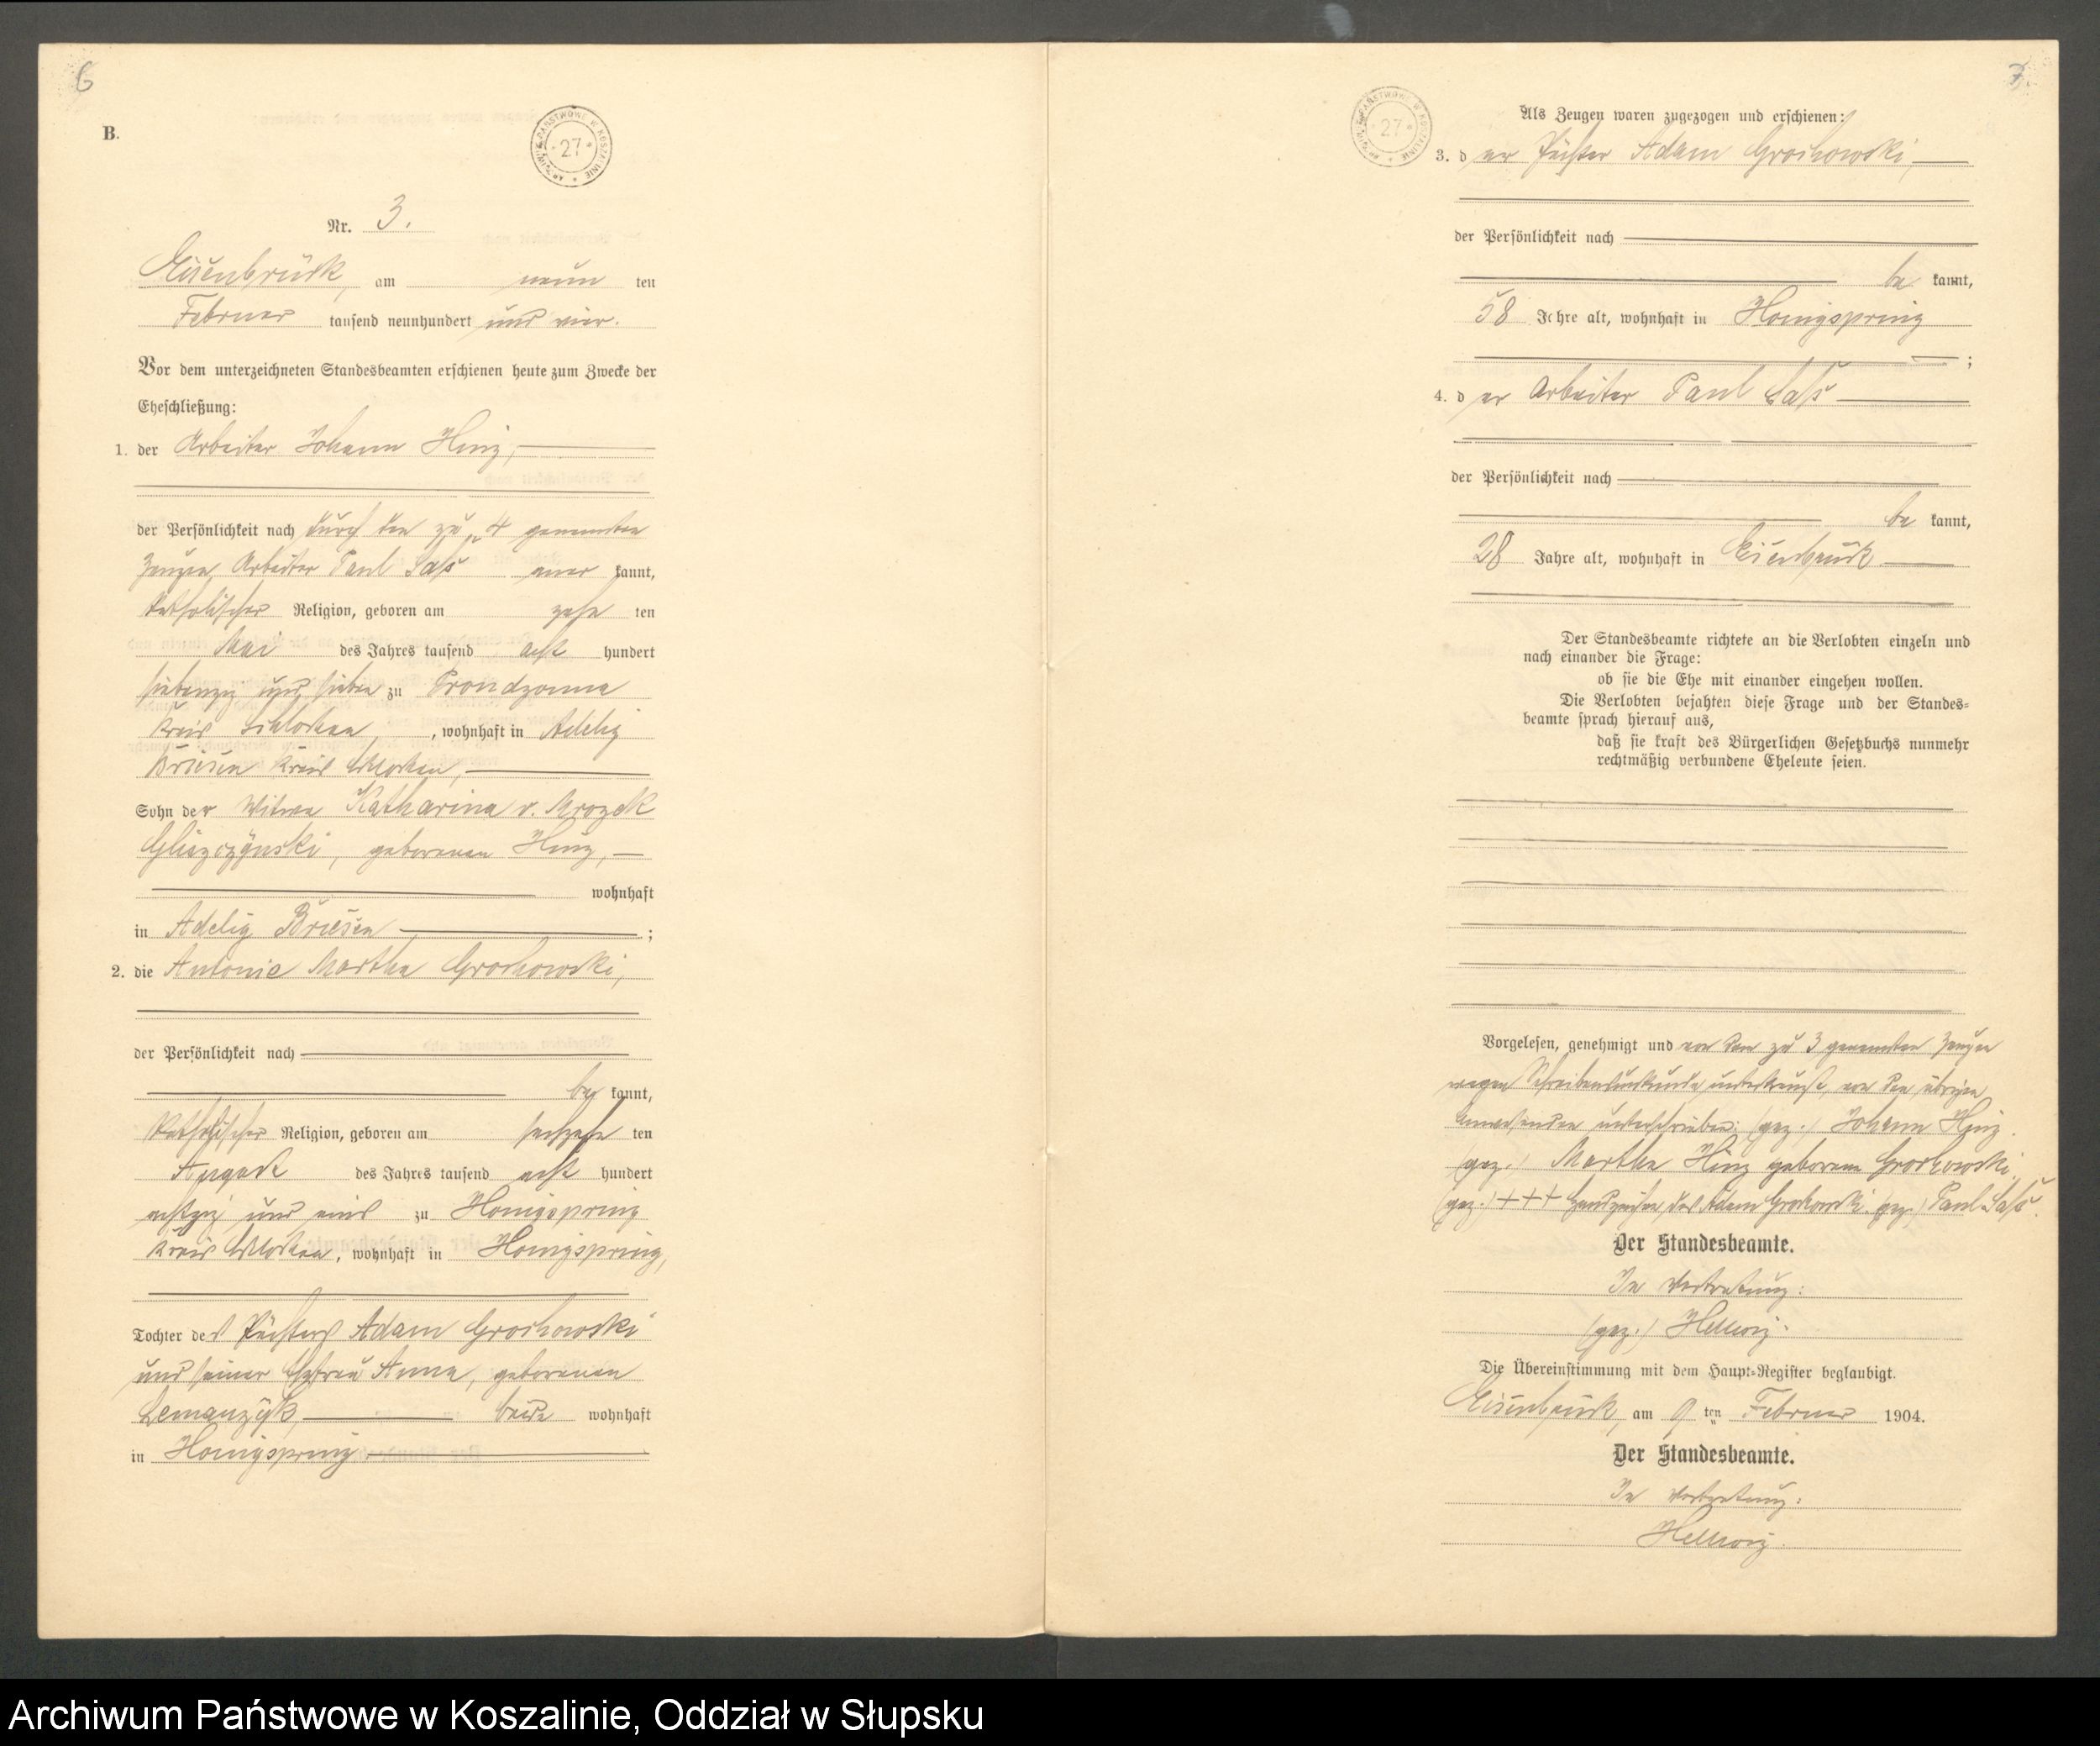 6
B.
ARCHIWUM PAŃSTWOWE W KOSZALINIE * 27 *
Nr. 3.
Eisenbrück, am neun ten
Februar tausend neunhundert und vier.
Vor dem unterzeichneten Standesbeamten erschienen heute zum Zwecke der
Eheschließung:
1. der Arbeiter Johann Hinz,
der Persönlichkeit nach durch den zu 4 genannten
Zeugen Arbeiter Paul Saß aner kannt,
katholischer Religion, geboren am zehn ten
Mai des Jahres tausend acht hundert
siebenzig und sieben zu Prondzonna
Kreis Schlochau, wohnhaft in Adelig
Briesen Kreis Schlochau,
Sohn der Witwe Katharina v. Mrozek
Gliszczynski, geborenen Hinz,
wohnhaft
in Adelig Briesen ;
2. die Antonie Martha Grochowski,
der Persönlichkeit nach
be kannt,
katholischer Religion, geboren am sechzehn ten
August des Jahres tausend acht hundert
achtzig und eins zu Honigspring
Kreis Schlochau, wohnhaft in Honigspring,
Tochter des Adam Grochowski
und seiner Ehefrau Anna, geborenen
beide wohnhaft
in Honigspring
7.
ARCHIWUM PAŃSTWOWE W KOSZALINIE * 27 *
Als Zeugen waren zugezogen und erschienen:
3. der Adam Grochowski,
der Persönlichkeit nach
be kannt,
58 Jahre alt, wohnhaft in Honigspring
;
4. der Arbeiter Paul Saß
der Persönlichkeit nach
be kannt,
28 Jahre alt, wohnhaft in Eisenbrück
Der Standesbeamte richtete an die Verlobten einzeln und
nach einander die Frage:
ob sie die Ehe mit einander eingehen wollen.
Die Verlobten bejahten diese Frage und der Standes=
beamte sprach hierauf aus,
daß sie kraft des Bürgerlichen Gesetzbuchs nunmehr
rechtmäßig verbundene Eheleute seien.
Vorgelesen, genehmigt und von dem zu 3 genannten Zeugen
wegen Schreibensunkunde unterkreuzt, von den übrigen
Anwesenden unterschrieben: (gez.) Johann Hinz.
(gez.) Martha Hinz geborene Grochowski
(gez.) +++ Handzeichen des Adam Grochowski. (gez.) Paul Saß.
Der Standesbeamte.
In Vertretung:
(gez.) Hellwig.
Die Übereinstimmung mit dem Haupt=Register beglaubigt.
Eisenbrück, am 9 ten Februar 1904.
Der Standesbeamte.
In Vertretung:
Hellwig.
Archiwum Państwowe w Koszalinie, Oddział w Słupsku